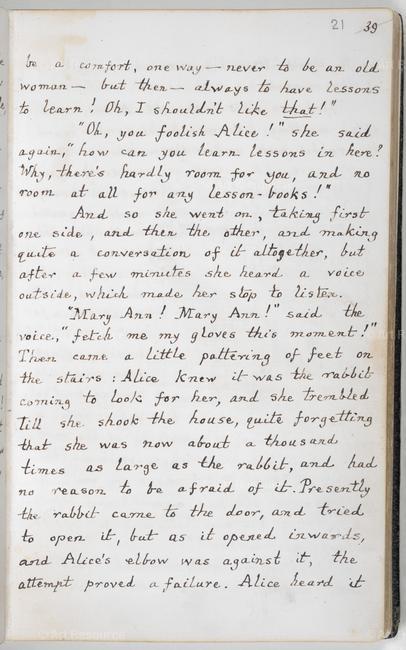 21 39
be a comfort, one way — never to be an old
woman — but then — always to have lessons
to learn! Oh, I shouldn't like that!"
"Oh, you foolish Alice!" she said
again, "how can you learn lessons in here?
Why, there's hardly room for you, and no
room at all for any lesson-books!"
And so she went on, taking first
one side, and then the other, and making
quite a conversation of it altogether, but
after a few minutes she heard a voice
outside, which made her stop to listen.
"Mary Ann! Mary Ann!" said the
voice, "fetch me my gloves this moment!"
Then came a little pattering of feet on
the stairs: Alice knew it was the rabbit
coming to look for her, and she trembled
till she shook the house, quite forgetting
that she was now about a thousand
times as large as the rabbit, and had
no reason to be afraid of it. Presently
the rabbit came to the door, and tried
to open it, but as it opened inwards,
and Alice's elbow was against it, the
attempt proved a failure. Alice heard it
Art Resource